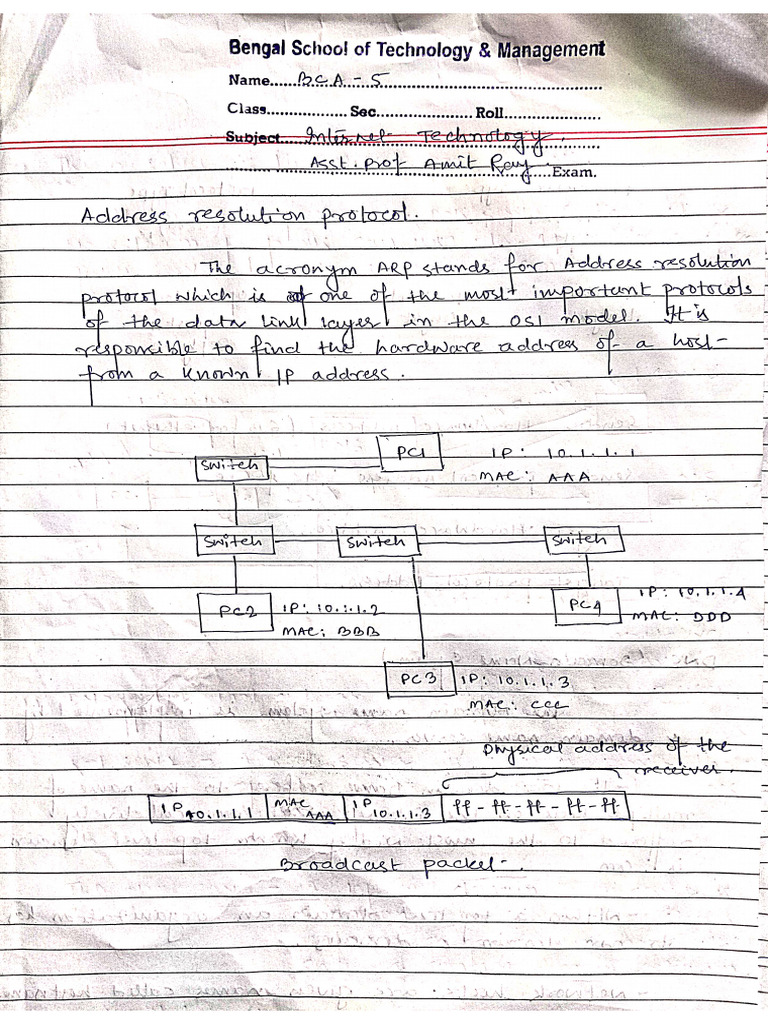 Bengal School of Technology & Management
Name......BCA - 5......
Class.................. Sec.................... Roll....................
Subject......Internet Technology......
......Asst. Prof Amit Ray......Exam.
Address resolution protocol.
The acronym ARP stands for Address resolution
protocol which is one of the most important protocols
of the data link layer in the OSI model. It is
responsible to find the hardware address of a host
from a known IP address.
PC1 IP: 10.1.1.1
Switch
MAC: AAA
Switch Switch Switch
PC2 IP: 10.1.1.2
MAC: BBB
PC4 IP: 10.1.1.4
MAC: DDD
PC3 IP: 10.1.1.3
MAC: CCC
Physical address of the
receiver.
IP 10.1.1.1 MAC AAA IP 10.1.1.3 ff - ff - ff - ff - ff
Broadcast packet.